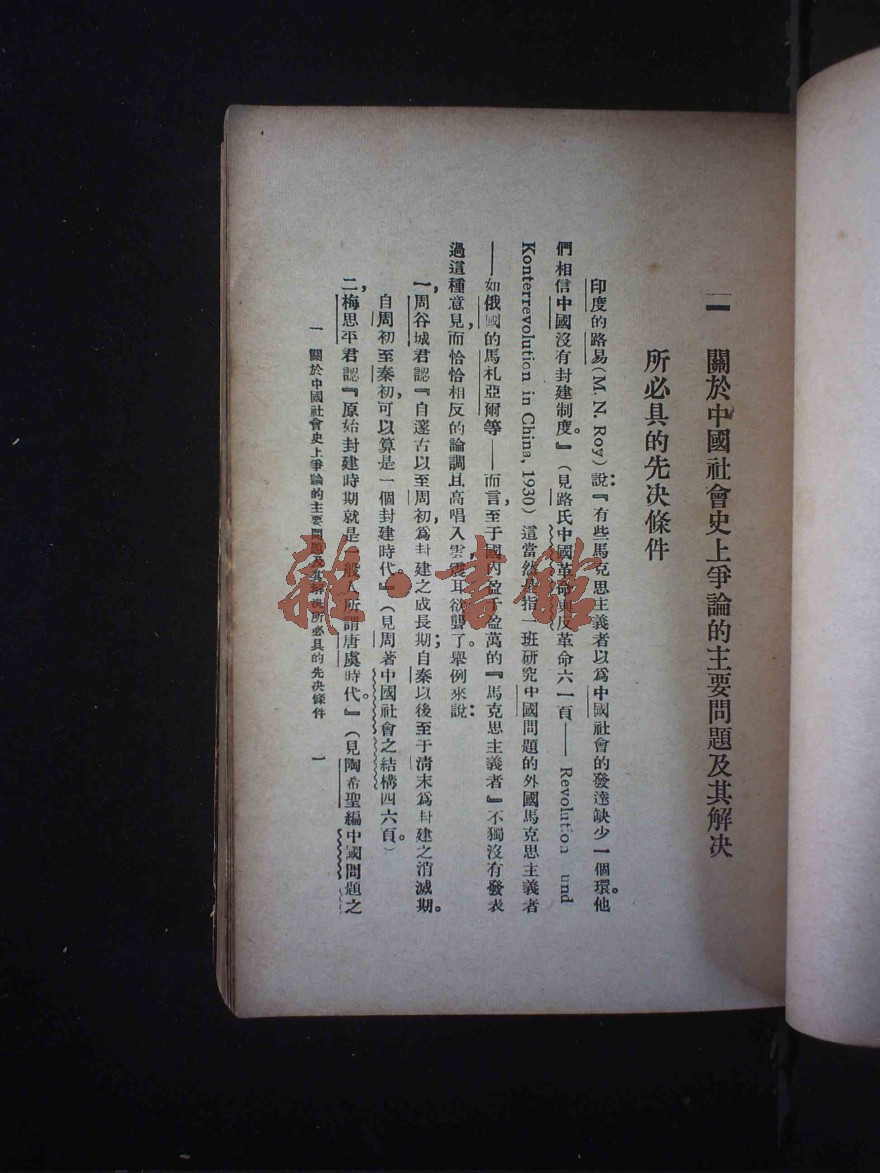 一　關於中國社會史上爭論的主要問題及其解決
所必具的先決條件
印度的路易(M. N. Roy)說：『有些馬克思主義者以爲中國社會的發達缺少一個環。他
們相信中國沒有封建制度。』(見路氏中國革命與反革命六一頁—— Revolution und
Konterrevolution in China, 1930) 這當然是指一班研究中國問題的外國馬克思主義者
——如俄國的馬札亞爾等——而言，至于國內盈千盈萬的『馬克思主義者』不獨沒有發表
過這種意見，而恰恰相反的論調且高唱入雲，震耳欲聾了。舉例來說：
一，周谷城君認『自邃古以至周初，爲封建之成長期；自秦以後至于清末爲封建之消滅期。
自周初至秦初，可以算是一個封建時代。』(見周著中國社會之結構四六頁。)
二，梅思平君認『原始封建時期就是一般人所謂唐虞時代。』(見陶希聖編中國問題之
一　關於中國社會史上爭論的主要問題及其解決所必具的先決條件　一
雜·書館